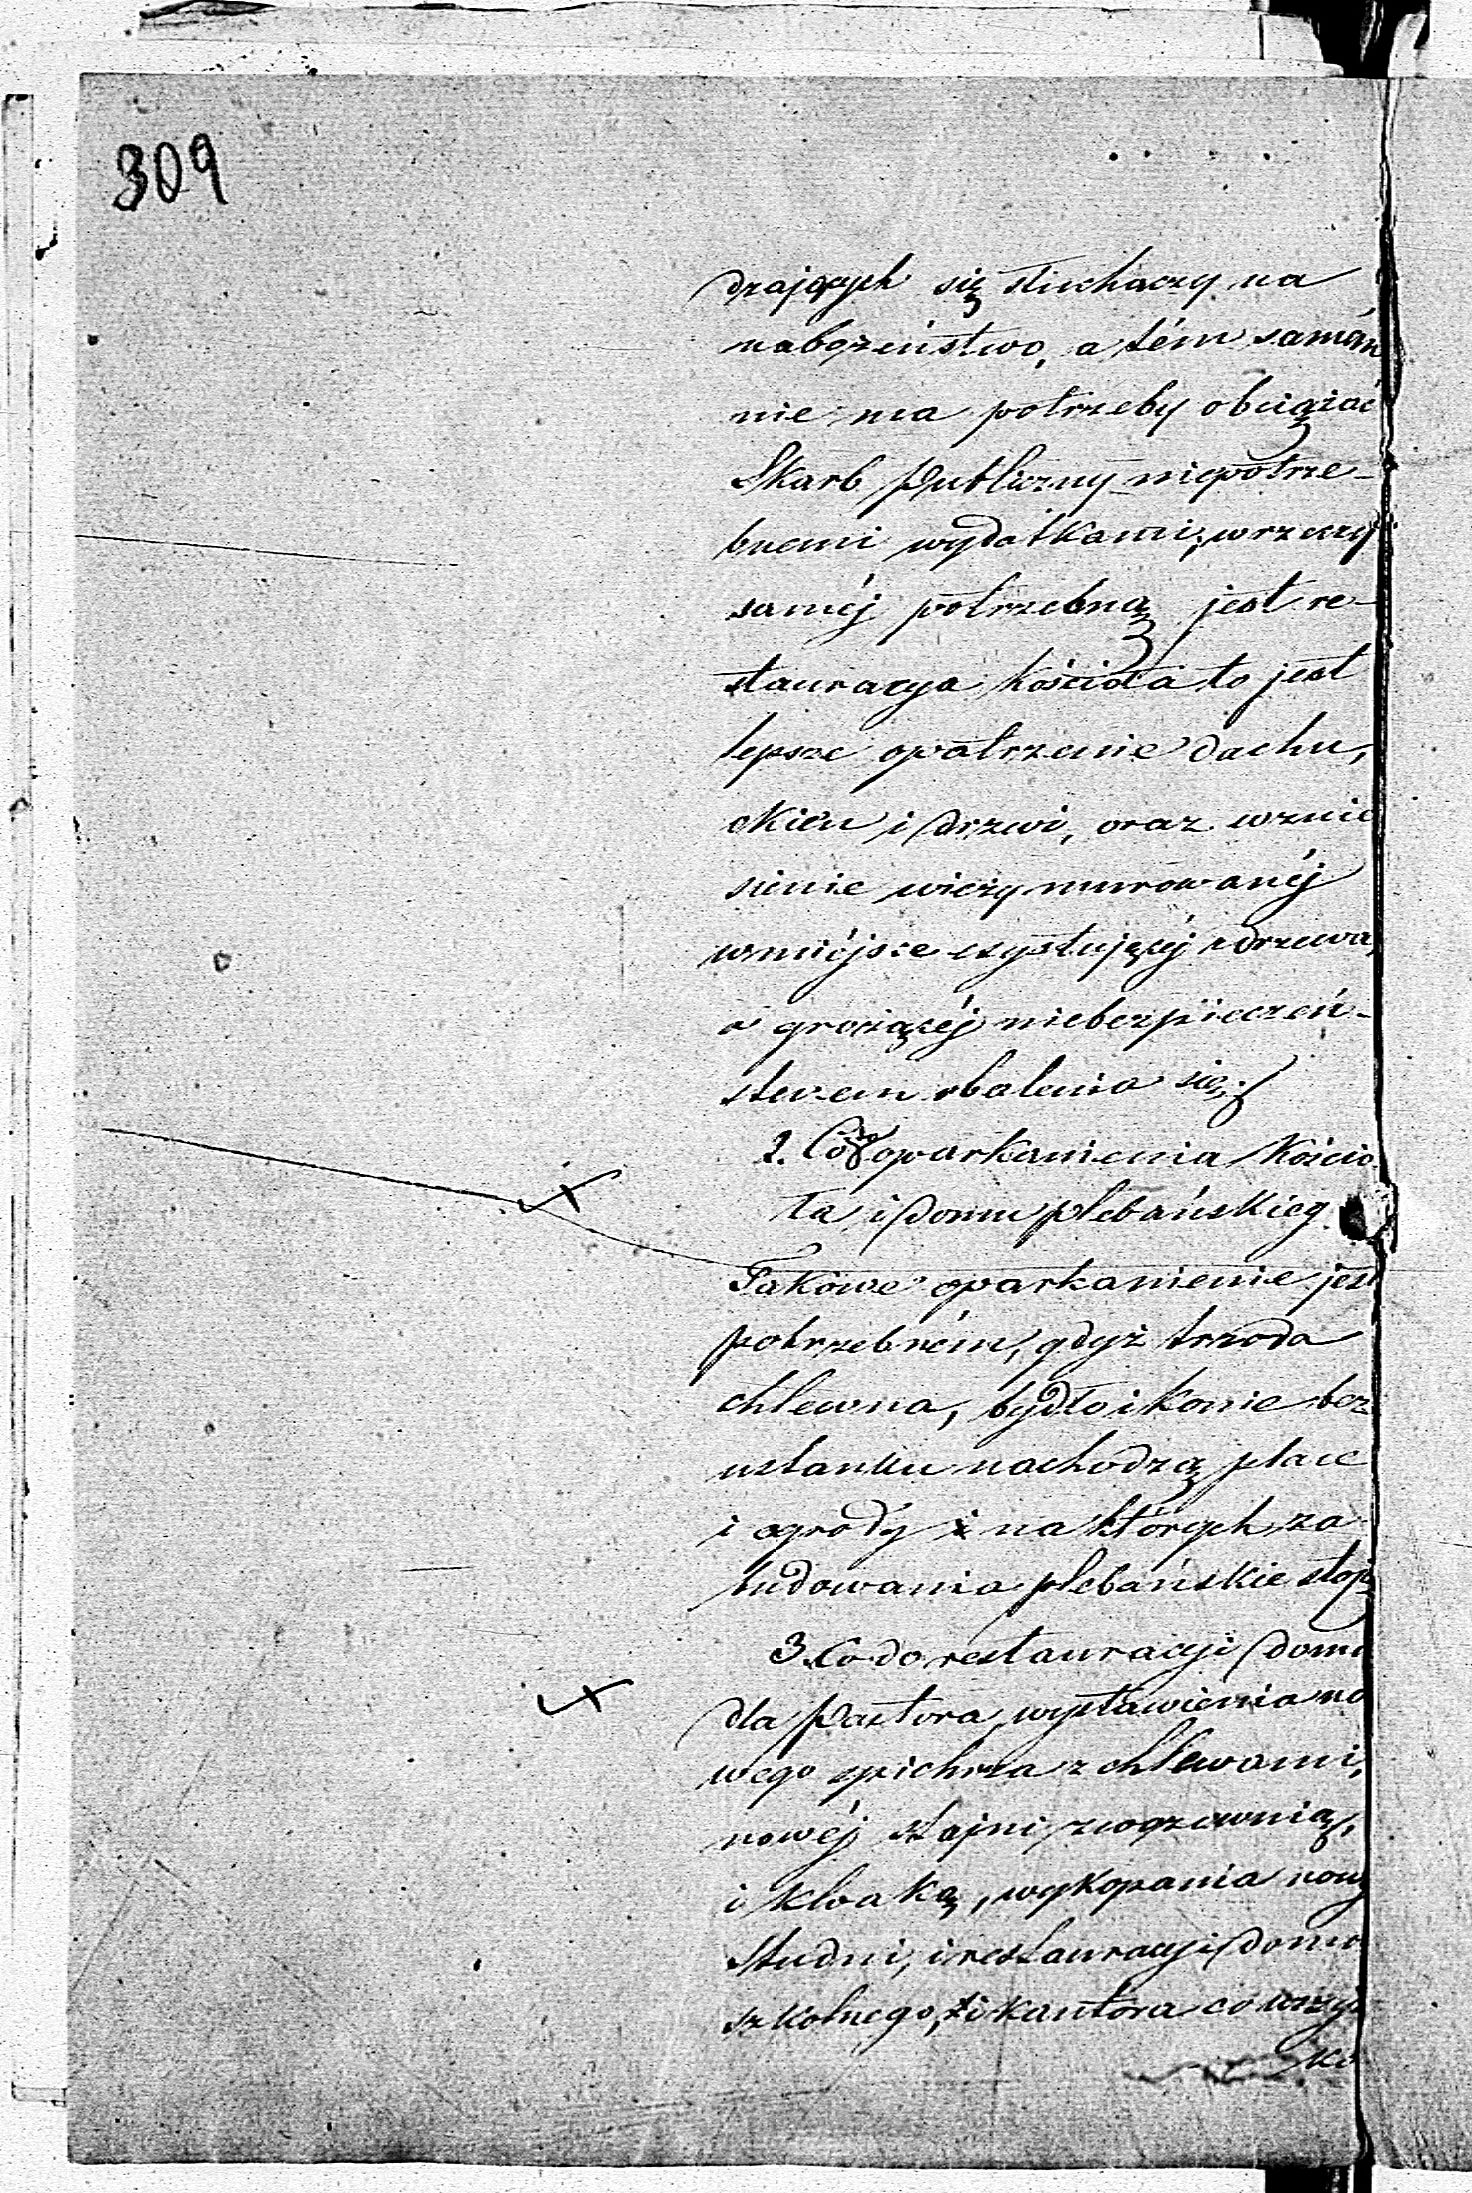 309
dzających się słuchaczy na
nabożeństwo, a tém samém
nie ma potrzeby obciążać
Skarb Publiczny niepotrze-
bnemi wydatkami; w rzeczy
saméj potrzebną jest re-
stauracya kościoła to jest
lepsze opatrzenie dachu,
okien i drzwi, oraz wznie
sienie wieży murowanéj
w miéjsce exystującéj z drzewa,
a grożącéj niebezpieczeń-
stwem obalenia się.
2. Co do oparkanienia Kościo
ła i domu plebańskieg
Takowe oparkanienie jest
potrzebném, gdyż trzoda
chlewna, bydło i konie bez
ustanku nachodzą place
i ogrody na których za-
budowania plebańskie stoją
3. Co do restauracyi domu
dla Pastora, wystawienia no
wego spichrza z chlewami,
nowéj stajni z wozownią,
i kloaką, wykopania nowéj
studni, i restauracyi domu
szkolnego, i kantora co wszyst
ko